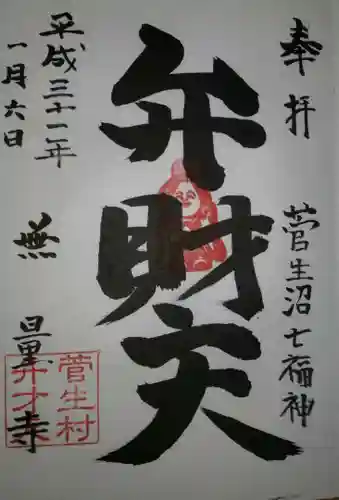 奉拝
菅生沼七福神
弁財天
平成三十一年
一月六日
無量寺
菅生村